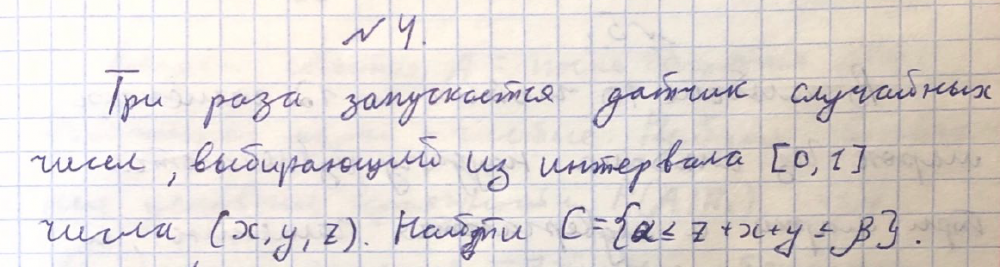 № 4.
Три раза запускается датчик случайных
чисел, выбирающий из интервала [0,1]
числа (x, y, z). Найти C = {α ≤ z + x + y ≤ β}.